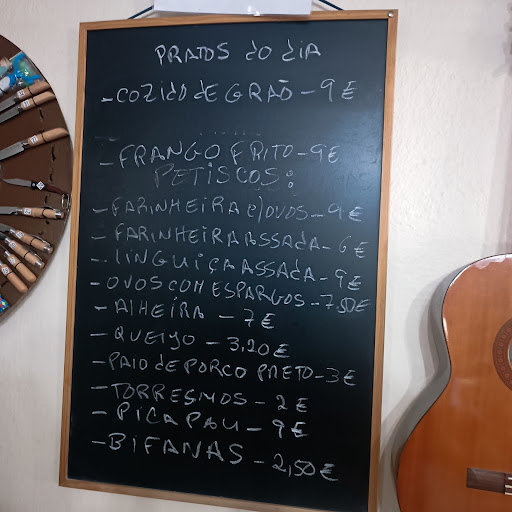 PRATOS do diA
- COZido de GRÃO - 9 €
- FRANGO FRITO - 9€
PETISCOS:
- FARINHEIRA c/ OVOS - 9 €
- FARINHEIRA ASSADA - 6 €
- LINGUIÇA ASSADA - 9 €
- OVOS COM ESPARGOS - 7.50€
- AlHEIRA - 7 €
- QUEIJO - 3,20 €
- PAIO de PORCO PRETO - 3 €
- TORRESMOS - 2 €
- PICA PAU - 9 €
- BIFANAS - 2,50 €